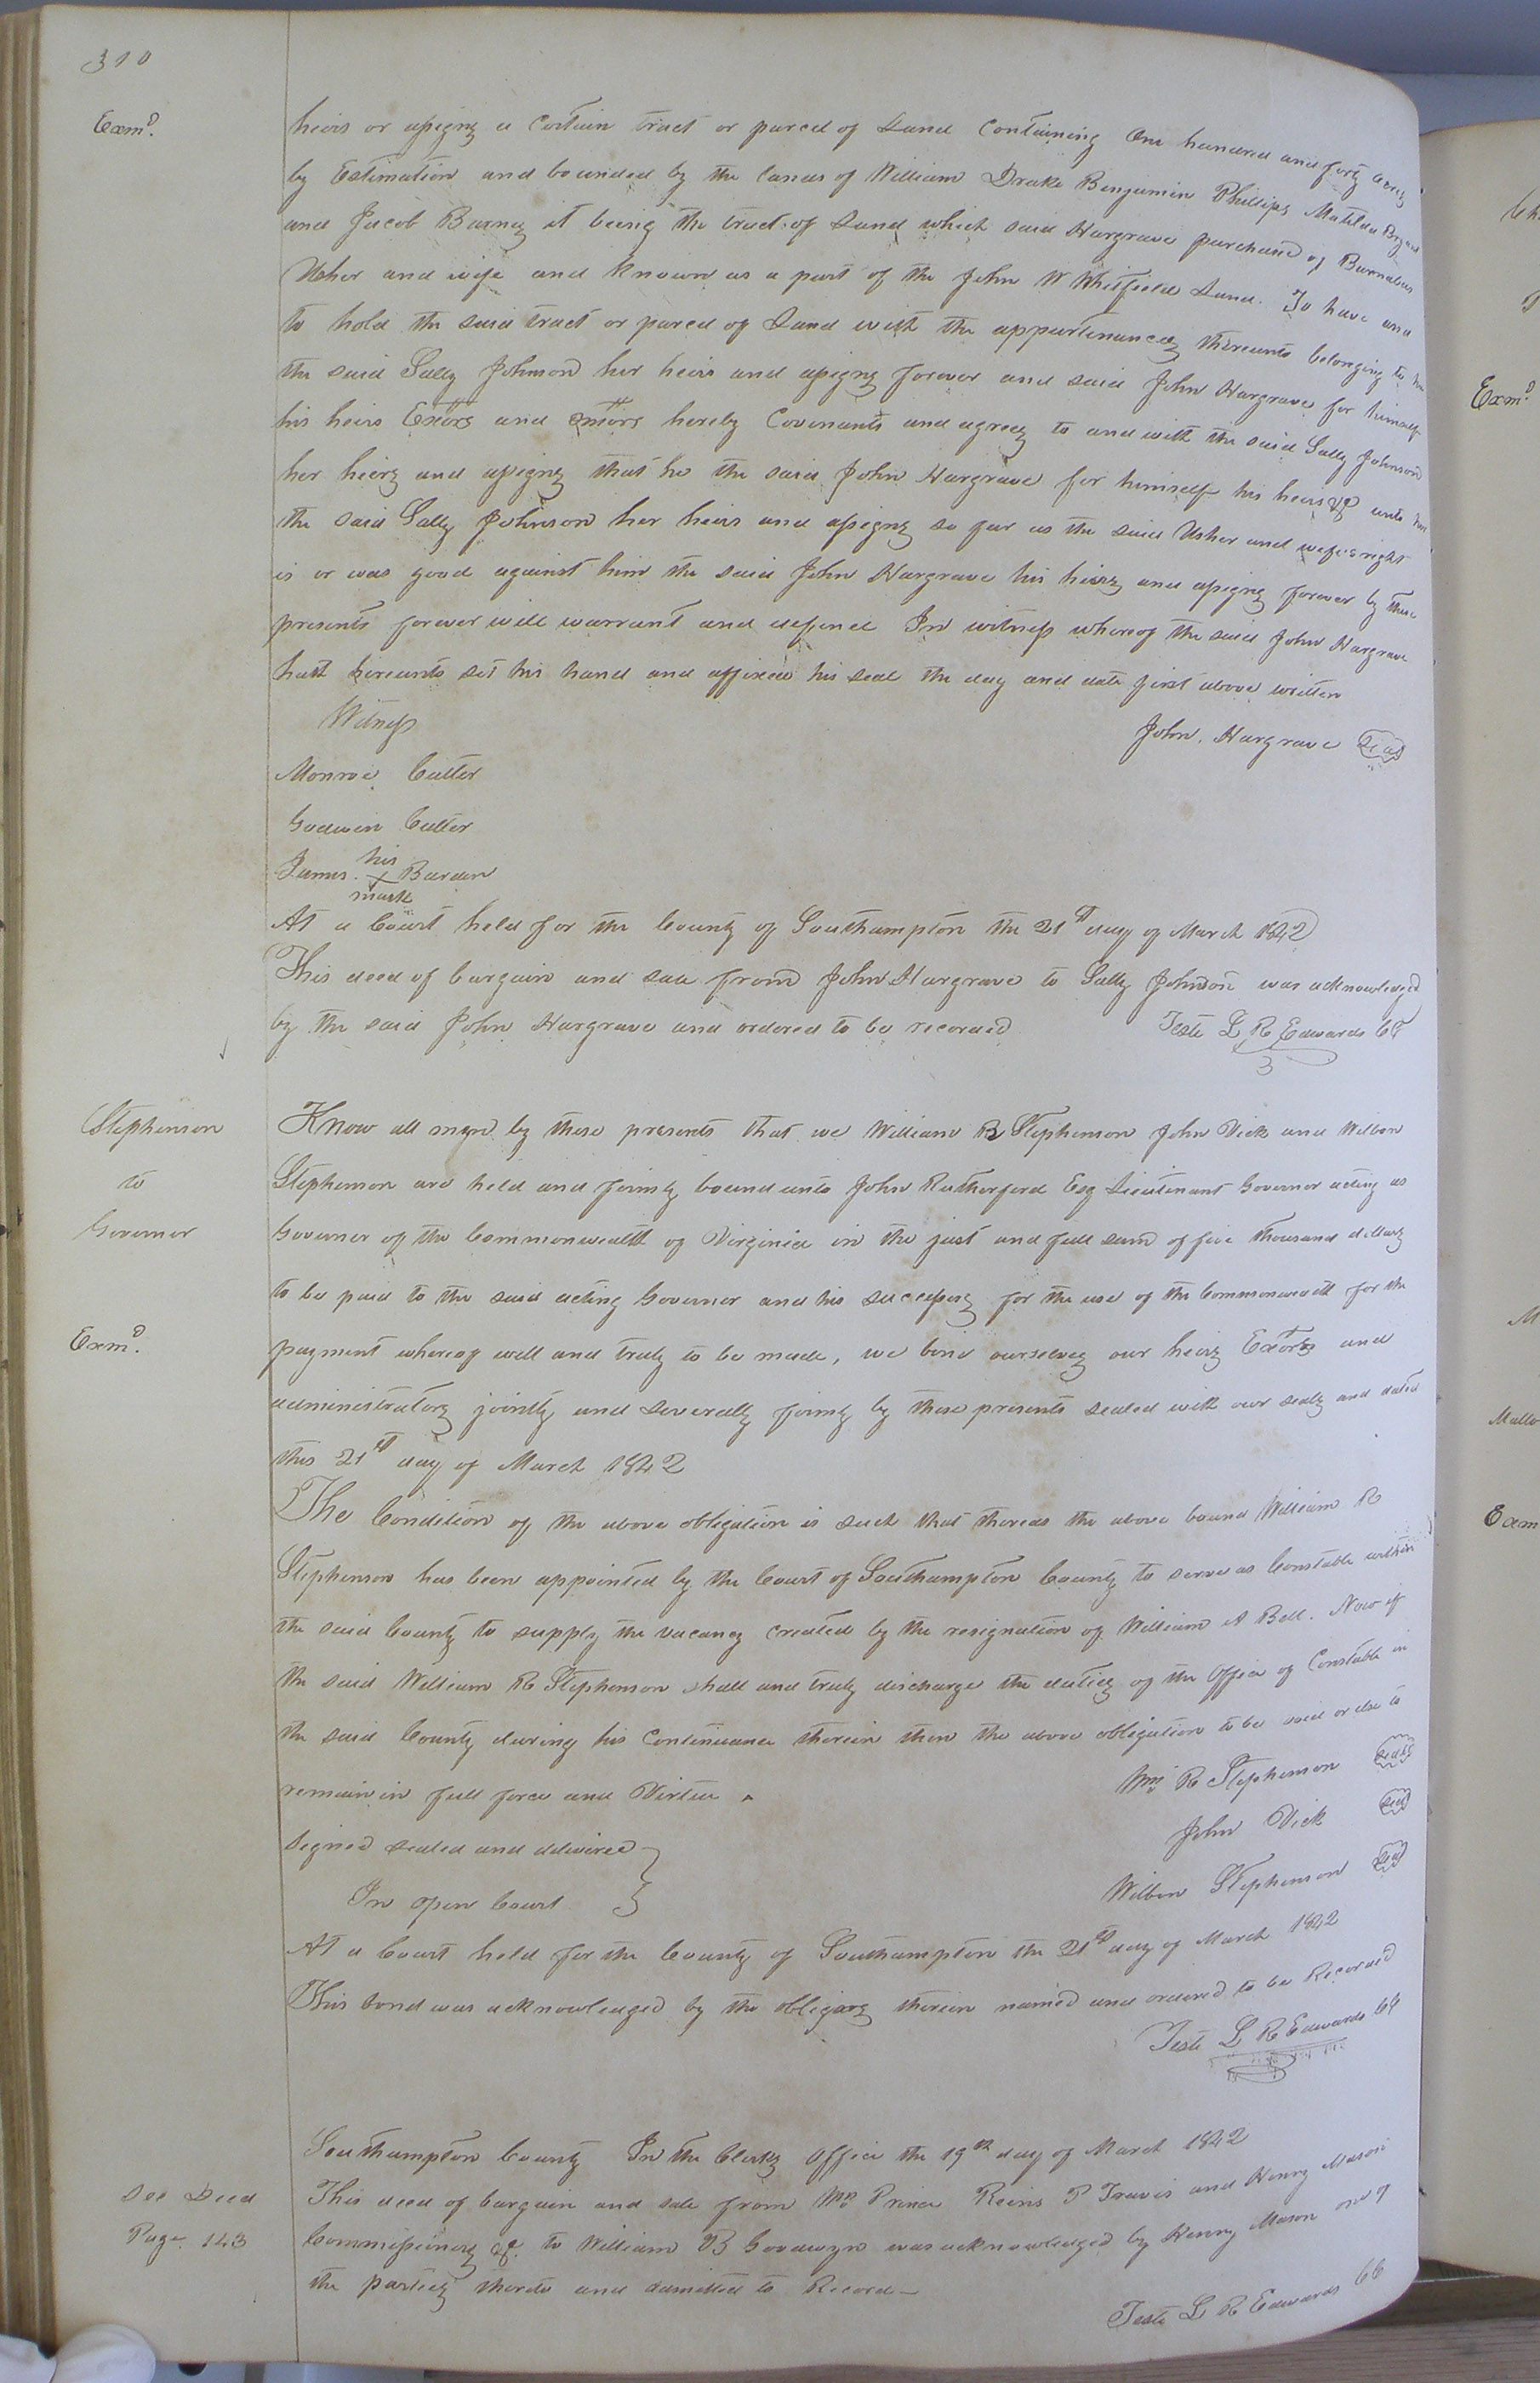 310
Exmd.
heirs or assigns a Certain tract or parcel of Land Containing One hundred and forty acres
by Estimation and bounded by the lands of William Drake Benjamin Phillips Matilda
and Jacob Barnes it being the tract of Land which said Hargrave purchased of Barnabas
Usher and wife and known as a part of the John W Whitfield Land. To have and
to hold the said tract or parcel of Land with the appurtenances thereunto belonging to
the said Sally Johnson her heirs and assigns forever and said John Hargrave for himself
his heirs Exors and hereby Covenants and agrees to and with the said Sally Johnson
her heirs and assigns that he the said John Hargrave for himself his heirs &c unto
the said Sally Johnson her heirs and assigns so far as the said Usher and wifes right
is or was good against him the said John Hargrave his heirs and assigns forever by these
presents forever will warrant and defend In witness whereof the said John Hargrave
hath hereunto set his hand and affixed his seal the day and date first above written
Witness
John. Hargrave Seal
Monroe Cutler
Godwin Cutler
his
James. X Barden
mark
At a Court held for the County of Southampton the 21st day of March 1842
This deed of bargain and sale from John Hargrave to Sally Johnson was acknowledged
by the said John Hargrave and ordered to be recorded
Teste L R Edwards Cl
Stephenson
to
Governor
Exmd.
Know all men by these presents that we William R Stephenson John Vick and Wilbon
Stephenson are held and firmly bound unto John Rutherford Esq Lieutenant Governor acting as
Governor of the Commonwealth of Virginia in the just and full sum of five thousand dollars
to be paid to the said acting Governor and his successors for the use of the Commonwealth for the
payment whereof well and truly to be made, we bind ourselves our heirs Exors and
administrators jointly and severally firmly by these presents sealed with our seals and dated
this 21st day of March 1842
The Condition of the above obligation is such that thereas the above bound William R
Stephenson has been appointed by the Court of Southampton County to serve as Constable within
the said County to supply the vacancy created by the resignation of William A Bell. Now if
the said William R Stephenson shall and truly discharge the duties of the Office of Constable in
the said County during his Continuance therein then the above obligation to be void or else to
remain in full force and Virtue.
Wm R Stephenson Seal
John Vick Seal
signed sealed and delivered
In open Court
Wilbon Stephenson Seal
At a Court held for the County of Southampton the 21st day of March 1842
This bond was acknowledged by the obligors therein named and ordered to be Recorded
Teste L R Edwards Cl
Southampton County In the Clerks Office the 19th day of March 1842
see Deed
Page. 143
This deed of bargain and sale from Wm Prince Reins P Travis and Henry Mason
Commissioners &c. to William B Goodwyn was acknowledged by Henry Mason one of
the parties thereto and admitted to Record—
Teste L R Edwards CC